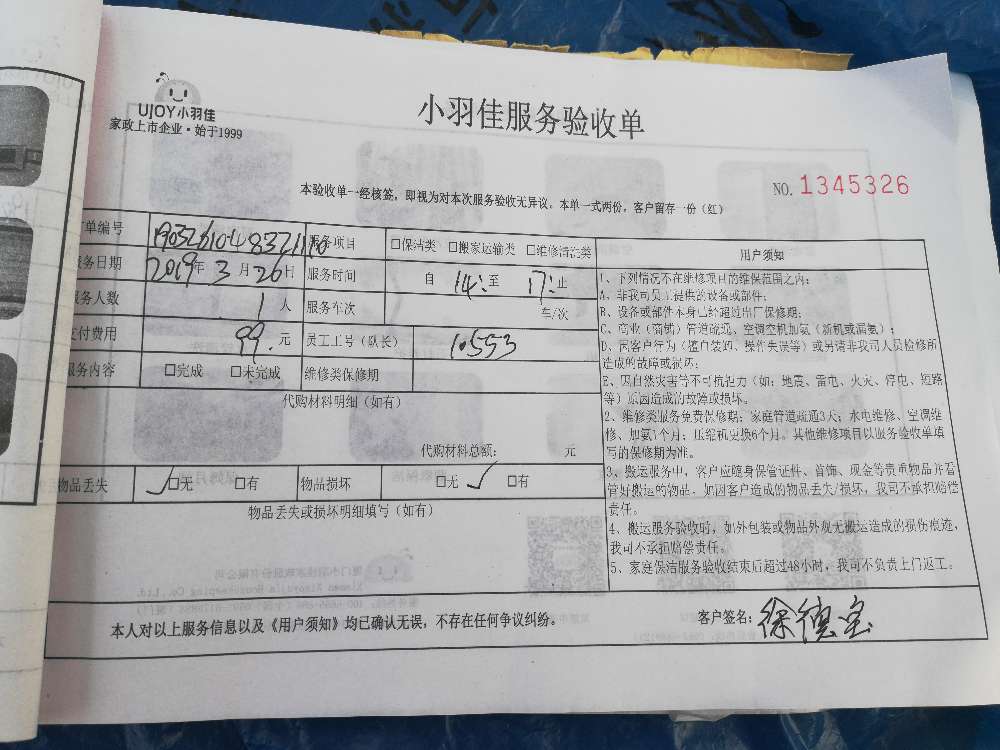 UJOY小羽佳
家政上市企业·始于1999
小羽佳服务验收单
本验收单一经核签，即视为对本次服务验收无异议。本单一式两份，客户留存一份（红）
NO. 1345326
单编号
服务项目 □保洁类 □搬家运输类 □维修清洗类
务日期 2019年3月26日 服务时间 自 14: 至 17: 止
务人数 1 人 服务车次 车/次
付费用 99. 元 员工工号（队长） 10553
服务内容 □完成 □未完成 维修类保修期
代购材料明细（如有）
代购材料总额： 元
物品丢失 ✓□无 □有 物品损坏 □无 ✓ □有
物品丢失或损坏明细填写（如有）
用户须知
1、下列情况不在维修项目的维保范围之内：
A、非我司员工提供的设备或部件；
B、设备或部件本身已经超过出厂保修期；
C、商业（商铺）管道疏通、空调空机加氨（新机或漏氨）；
D、因客户行为（擅自装拆、操作失误等）或另请非我司人员检修所
造成的故障或损坏；
E、因自然灾害等不可抗拒力（如：地震、雷电、火灾、停电、短路
等）原因造成的故障或损坏。
2、维修类服务免费保修期：家庭管道疏通3天；水电维修、空调维
修、加氨1个月；压缩机更换6个月。其他维修项目以服务验收单填
写的保修期为准。
3、搬运服务中，客户应随身保管证件、首饰、现金等贵重物品并看
管好搬运的物品，如因客户造成的物品丢失/损坏，我司不承担赔偿
责任。
4、搬运服务验收时，如外包装或物品外观无搬运造成的损伤痕迹，
我司不承担赔偿责任。
5、家庭保洁服务验收结束后超过48小时，我司不负责上门返工。
本人对以上服务信息以及《用户须知》均已确认无误，不存在任何争议纠纷。
客户签名：徐德宝